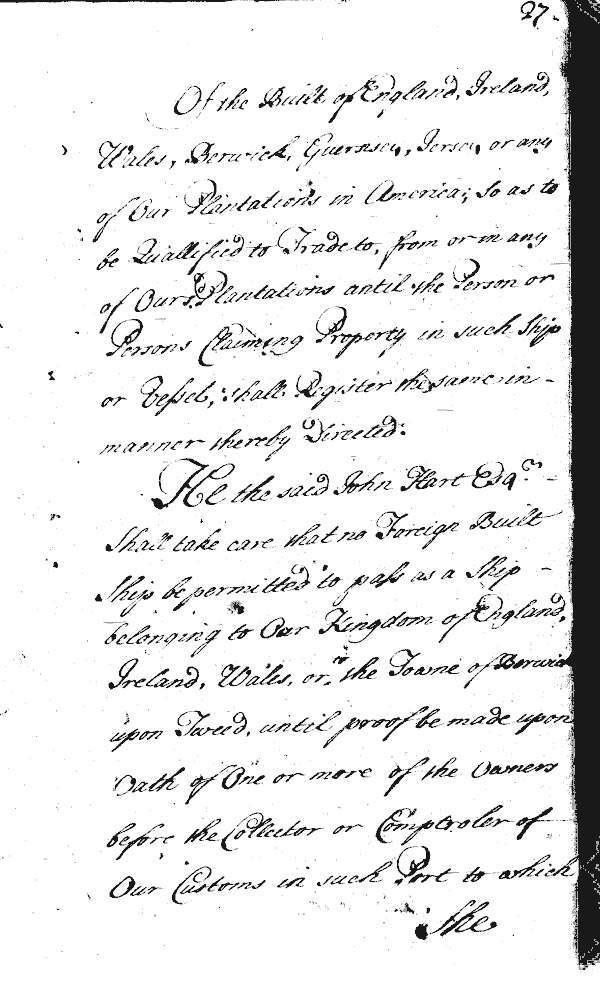 27.
Of the Built of England, Ireland,
Wales, Berwick, Guernsey, Jersey, or any
of Our Plantations in America; so as to
be Quallified to Trade to, from or in any
of Our sd. Plantations until the Person or
Persons Claiming Property in such Ship
or Vessel, shall Register the same in -
manner thereby Directed:
He the said John Hart Esqr. -
Shall take care that no Foreign Built
Ship be permitted to pass as a Ship -
belonging to Our Kingdom of England,
Ireland, Wales, or, the Towne of Berwick
upon Tweed, until proof be made upon
Oath of One or more of the Owners
before the Collector or Comptroler of
Our Customs in such Port to which
She